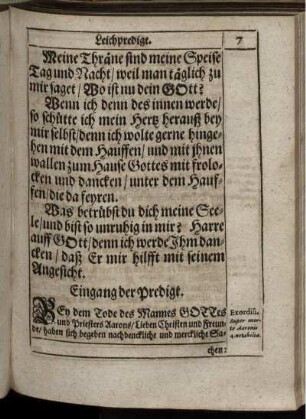 Leichpredigt. 7
Meine Thräne sind meine Speise
Tag und Nacht/ weil man täglich zu
mir saget/ Wo ist nu dein GOtt?
Wenn ich denn des innen werde/
so schütte ich mein Hertz herauß bey
mir selbst/ denn ich wolte gerne hinge-
hen mit dem Hauffen/ und mit jhnen
wallen zum Hause Gottes mit frolo-
cken und dancken/ unter dem Hauf-
fen/ die da feyren.
Was betrübst du dich meine See-
le/ und bist so unruhig in mir? Harre
auff GOtt/ denn ich werde Jhm dan-
cken/ daß Er mir hilfft mit seinem
Angesicht.
Eingang der Predigt.
BEy dem Tode des Mannes GOTTes
und Priesters Aarons/ Lieben Christen und Freun-
de/ haben sich begeben nachdencklicht und mercklicht Sa-
chen:
Exordiū.
super mor-
te Aaronis
4. notabilia.